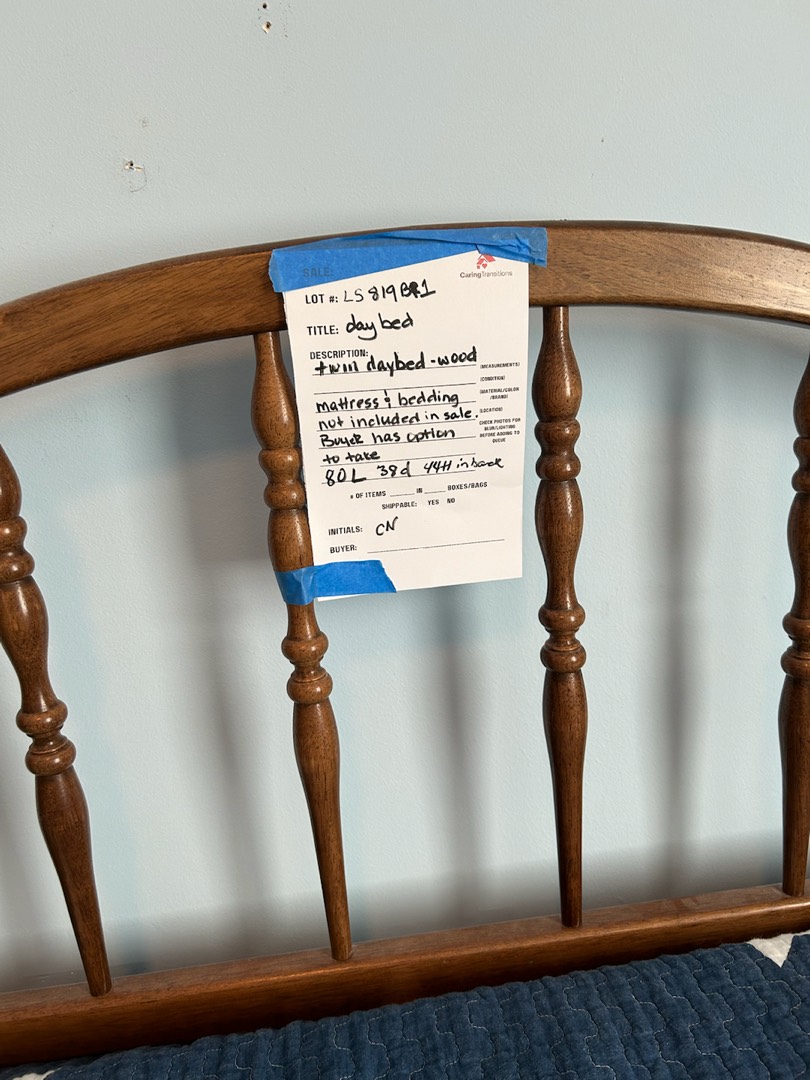 SALE:
CaringTransitions
LOT #: LS 819 BR1
TITLE: day bed
DESCRIPTION:
twin daybed - wood
(MEASUREMENTS)
(CONDITION)
(MATERIAL/COLOR
/BRAND)
(LOCATION)
CHECK PHOTOS FOR
BLUR/LIGHTING
BEFORE ADDING TO
QUEUE
mattress & bedding
not included in sale.
Buyer has option
to take
80L 38d 44H in back
# OF ITEMS ____ IN ____ BOXES/BAGS
SHIPPABLE: YES NO
INITIALS: CN
BUYER: